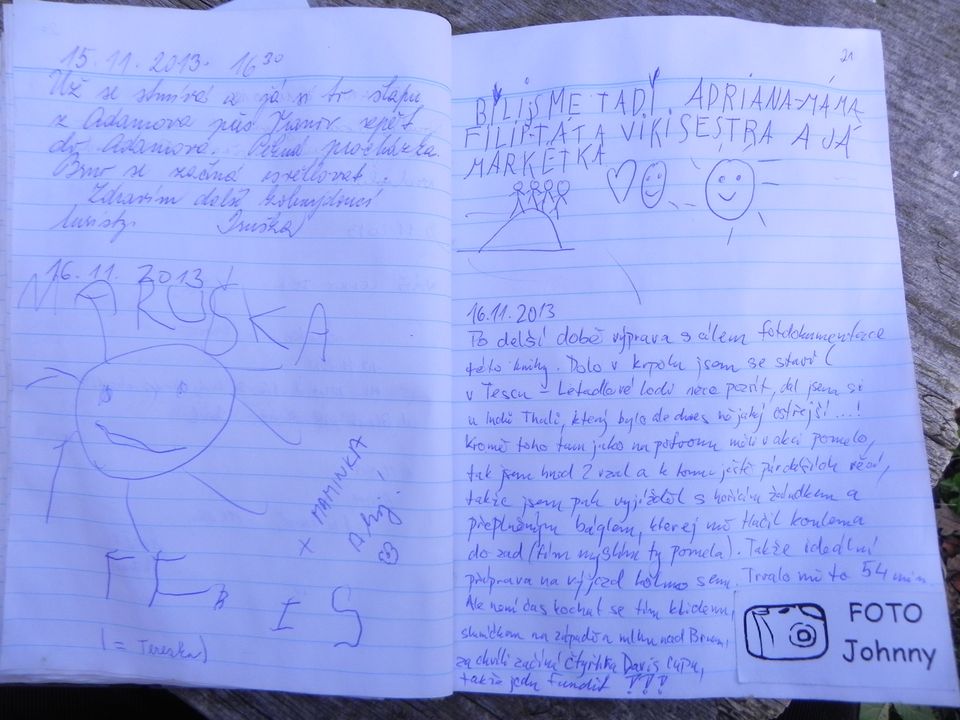 15.11.2013. 16 30
Už se stmívá a já si tu šlapu
z Adamova přes Vranov zpět
do Adamova. Pěkná procházka.
Brno se začíná osvětlovat.
Zdravím další kolemjdoucí
turisty.
16.11. 2013
MARUŠKA
x MAMINKAx
Ahoj!
I S
(= Tereska)
21
BYLI JSME TADY. ADRIANA-MÁMA
FILIP-TÁTA VIKI SESTRA A JÁ
MARKÉTKA
16.11.2013
Po delší době výprava s cílem fotdokumentace
této knihy. Dolo v krpolu jsem se stavil
v Tescu - Letadlové lodi něco pozřít, dal jsem si
u Indů Thali, který bylo ale dnes nějaký ostřejší...!
Kromě toho tam jako na potvoru měli v akci pomelo,
tak jsem hned 2 vzal a k tomu ještě pár dalších věcí,
takže jsem pak vyjížděl s hořícím žaludkem a
přeplněným báglem, kterej mě tlačil koulema
do zad (tím myslím ty pomela). Takže ideální
příprava na výjezd kolmo sem. Trvalo mi to 54 min.
Ale není čas kochat se tím klidem,
sluníčkem na západě a mlhou nad Brnem,
za chvíli začíná čtyřhra Davis Cupu,
takže jedu fandit !!!
FOTO
Johnny